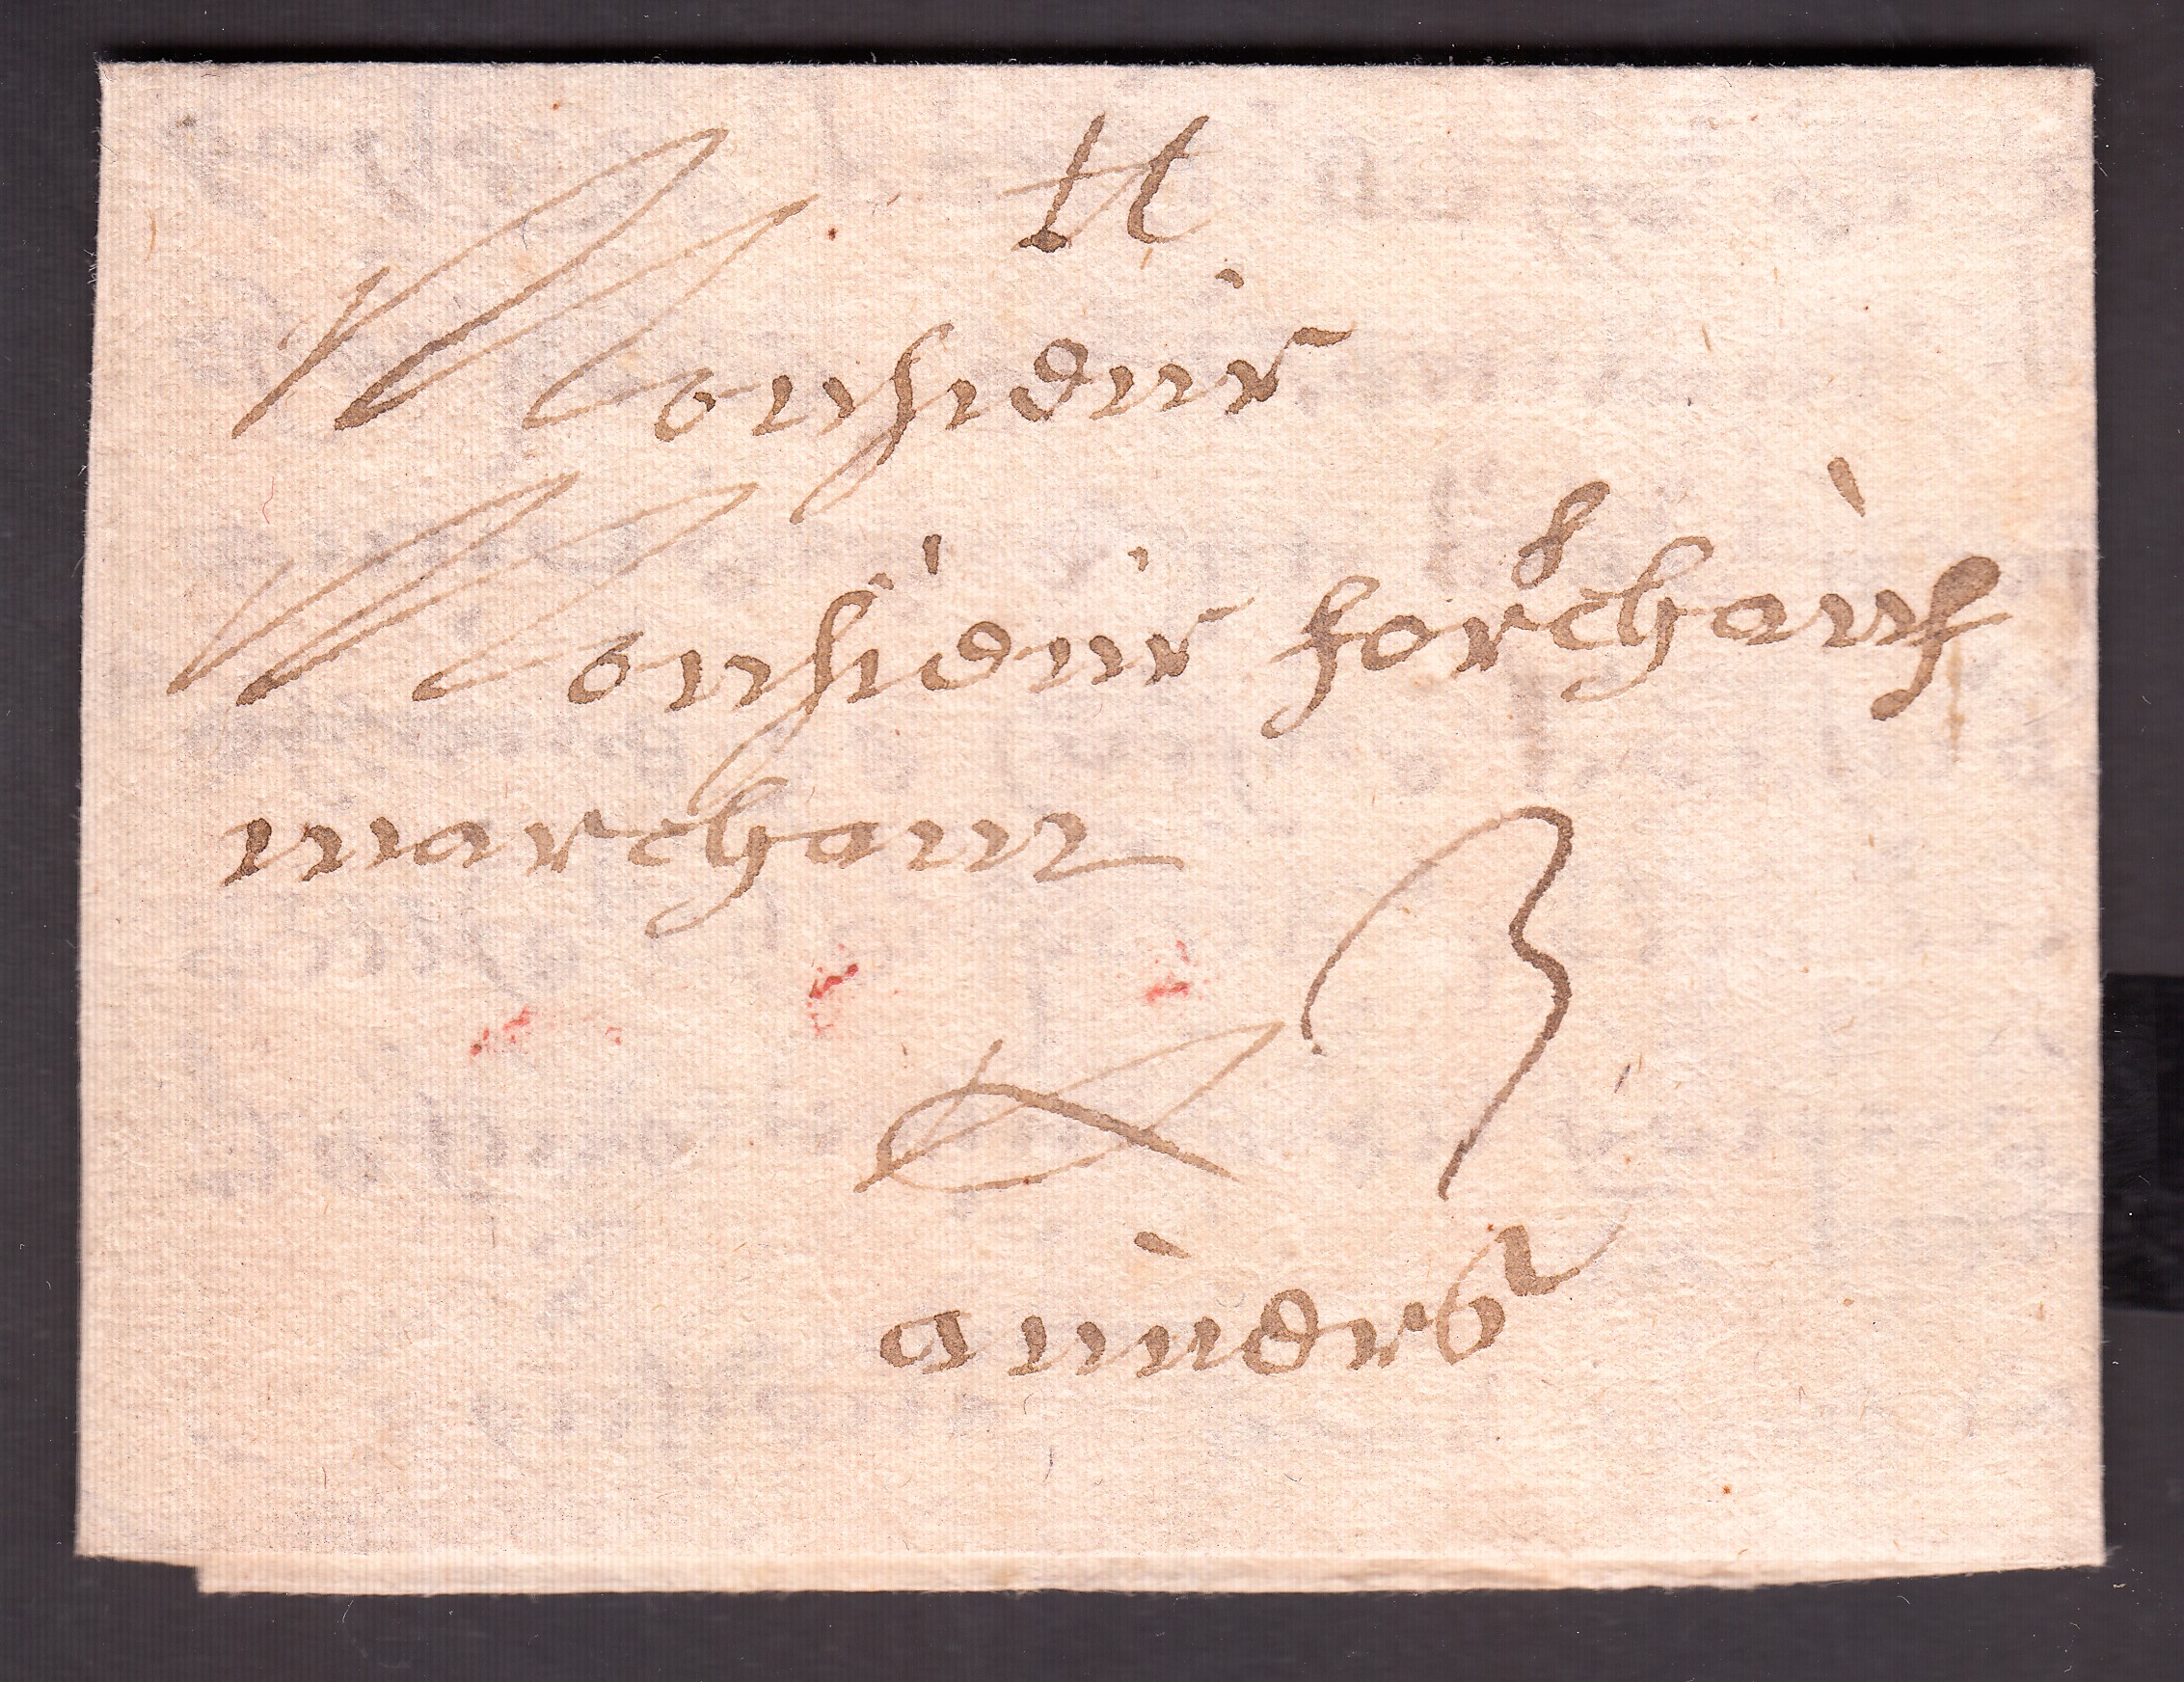 Monsieur
Monsieur forchauf
marchant
3
anuers